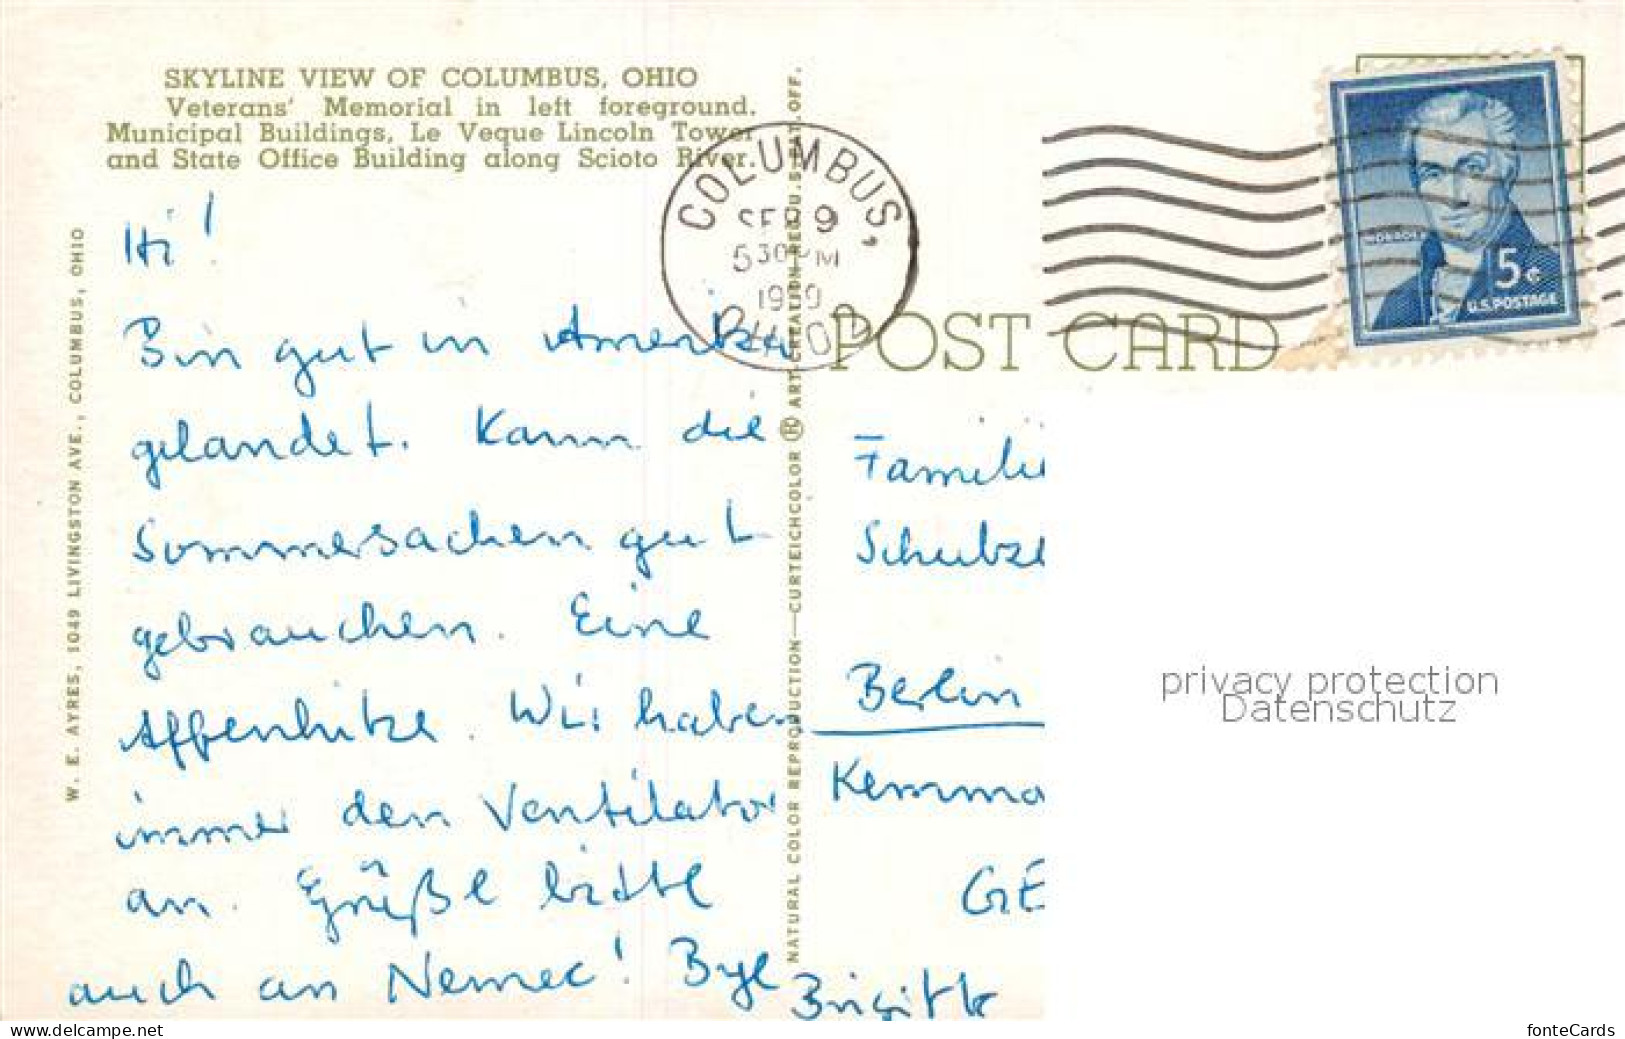 SKYLINE VIEW OF COLUMBUS, OHIO
Veterans' Memorial in left foreground.
Municipal Buildings, Le Veque Lincoln Tower
and State Office Building along Scioto River.
W. E. AYRES, 1049 LIVINGSTON AVE., COLUMBUS, OHIO
Hi!
Bin gut in Amerika
gelandet. Kann die
Sommersachen gut
gebrauchen. Eine
Affenhitze. Wir haben
immer den Ventilator
an. Grüße bitte
auch an Nemec! Bye
Brigitte
NATURAL COLOR REPRODUCTION—CURTEICHCOLOR ® ART-CREATION REG. U.S. PAT. OFF.
COLUMBUS,
SEP 9
5 30 PM
OHIO
POST CARD
MONROE
5¢
U.S. POSTAGE
Familie
Berlin
Kemma
GE
privacy protection
Datenschutz
www.delcampe.net
fonteCards